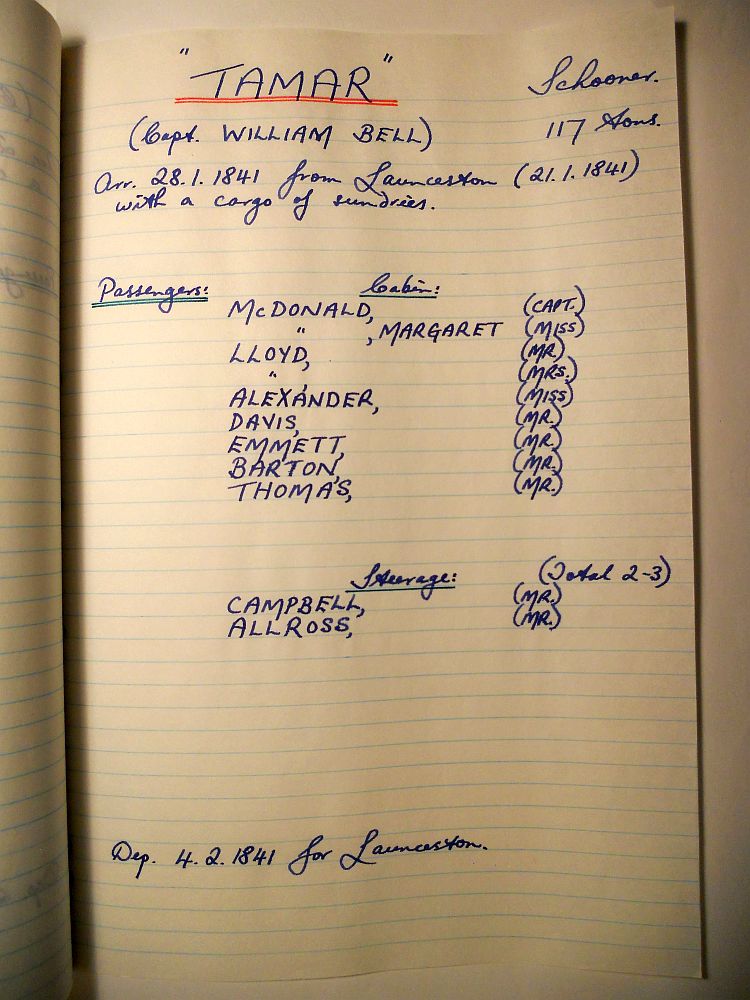 "TAMAR" Schooner.
(Capt. WILLIAM BELL) 117 tons.
Arr. 28.1.1841 from Launceston (21.1.1841)
with a cargo of sundries.
Passengers: Cabin:
McDONALD, (CAPT.)
" , MARGARET (MISS)
LLOYD, (MR.)
" , (MRS.)
ALEXANDER, (MISS)
DAVIS, (MR.)
EMMETT, (MR.)
BARTON, (MR.)
THOMAS, (MR.)
Steerage: (Total 2-3)
CAMPBELL, (MR.)
ALLROSS, (MR.)
Dep. 4.2.1841 for Launceston.